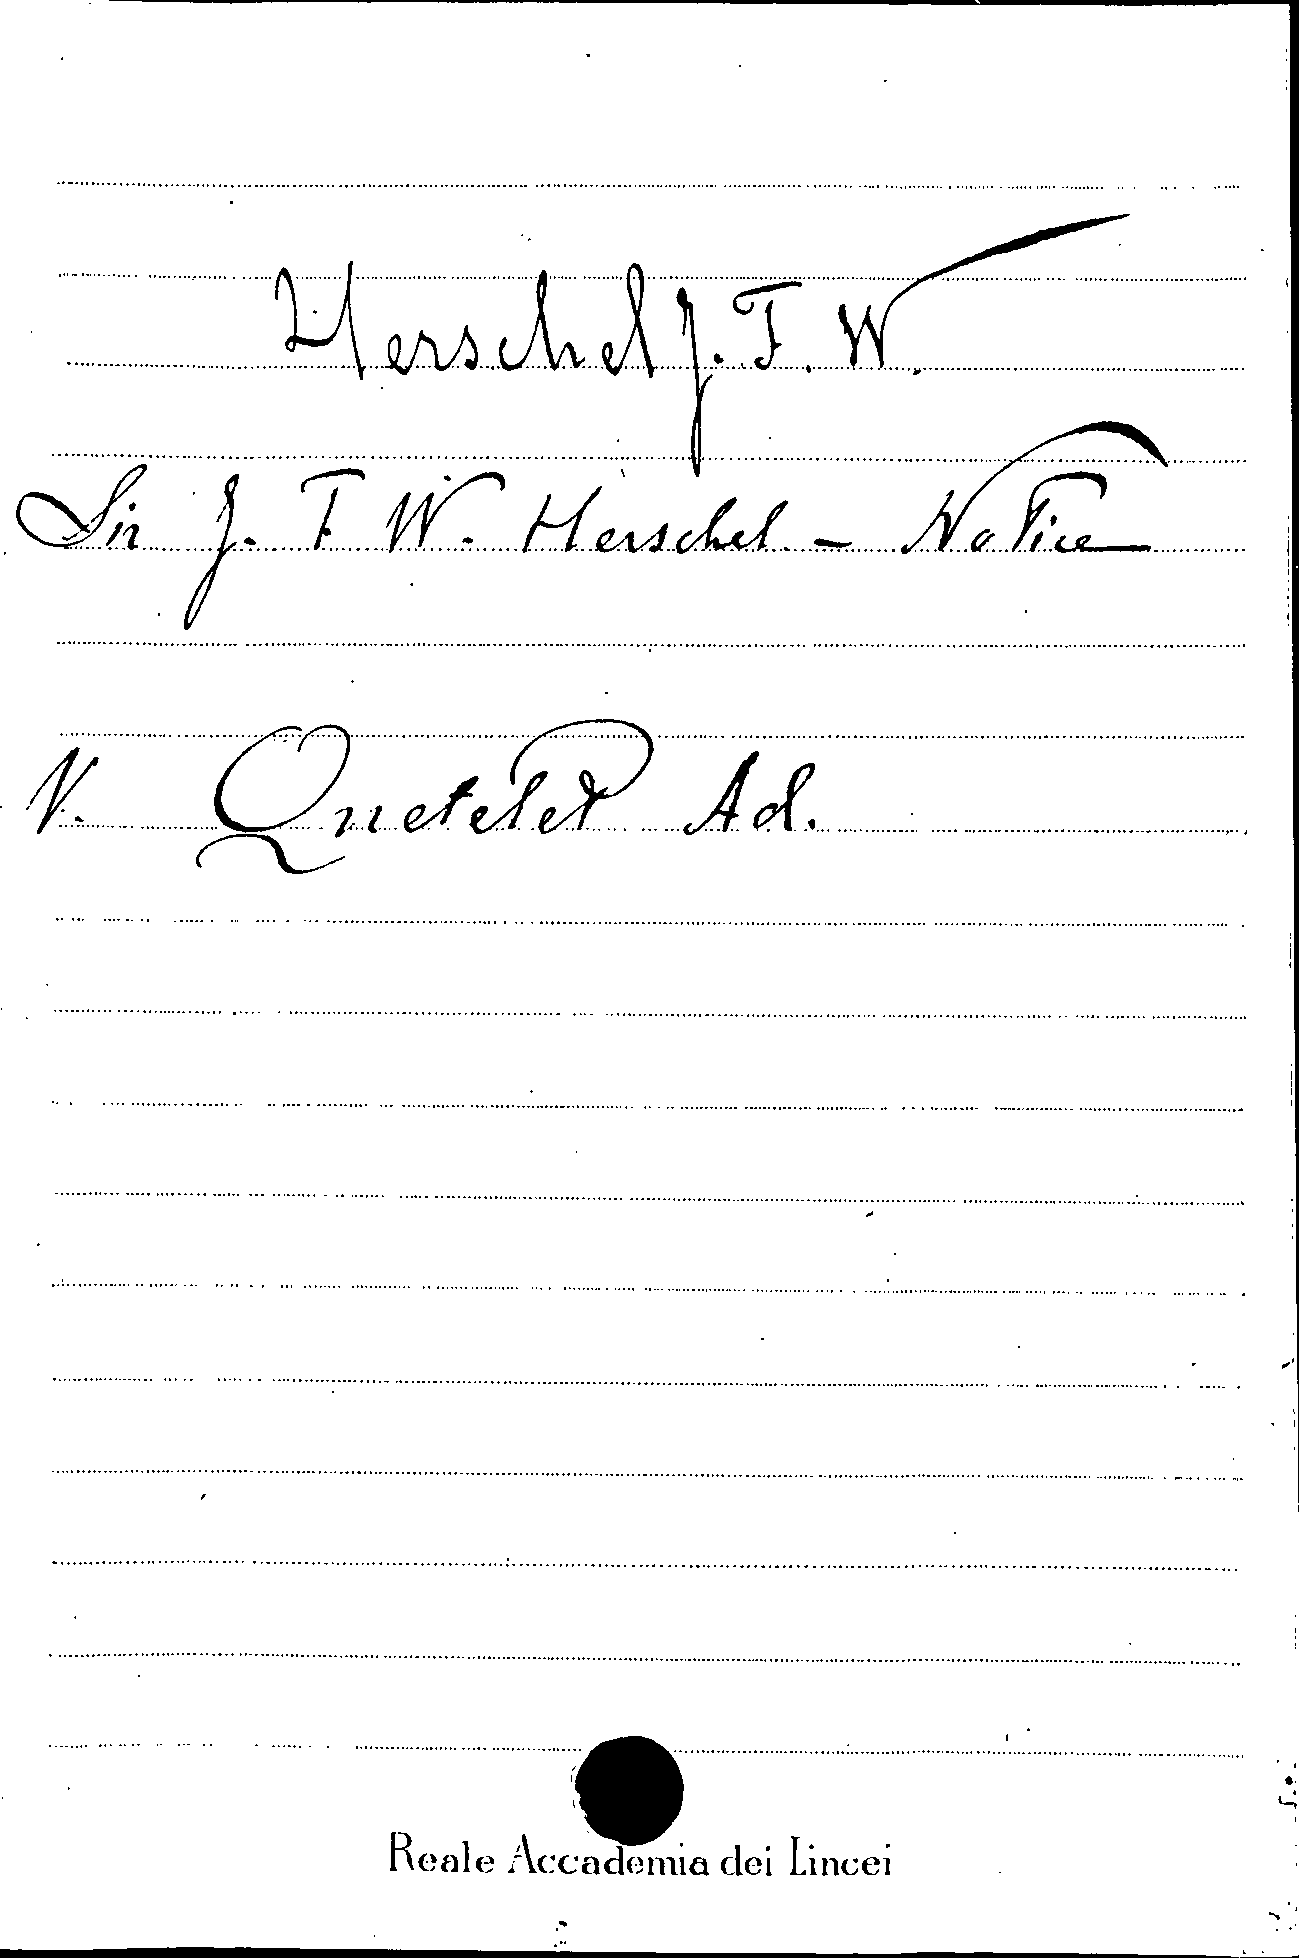 Herschel J. F. W.
Sir J. F. W. Herschel. - Notice
V. Quetelet Ad.
Reale Accademia dei Lincei